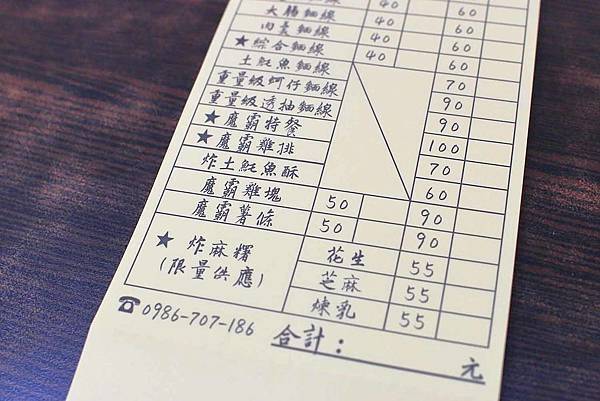 40 60
大腸麵線 40 60
肉羹麵線 40 60
★綜合麵線 40 60
土魠魚麵線 70
重量級蚵仔麵線 90
重量級透抽麵線 90
★魔霸特餐 100
★魔霸雞排 70
炸土魠魚酥 60
魔霸雞塊 50 90
魔霸薯條 50 90
★炸麻糬
(限量供應)
花生 55
芝麻 55
煉乳 55
☎0986-707-186 合計：元